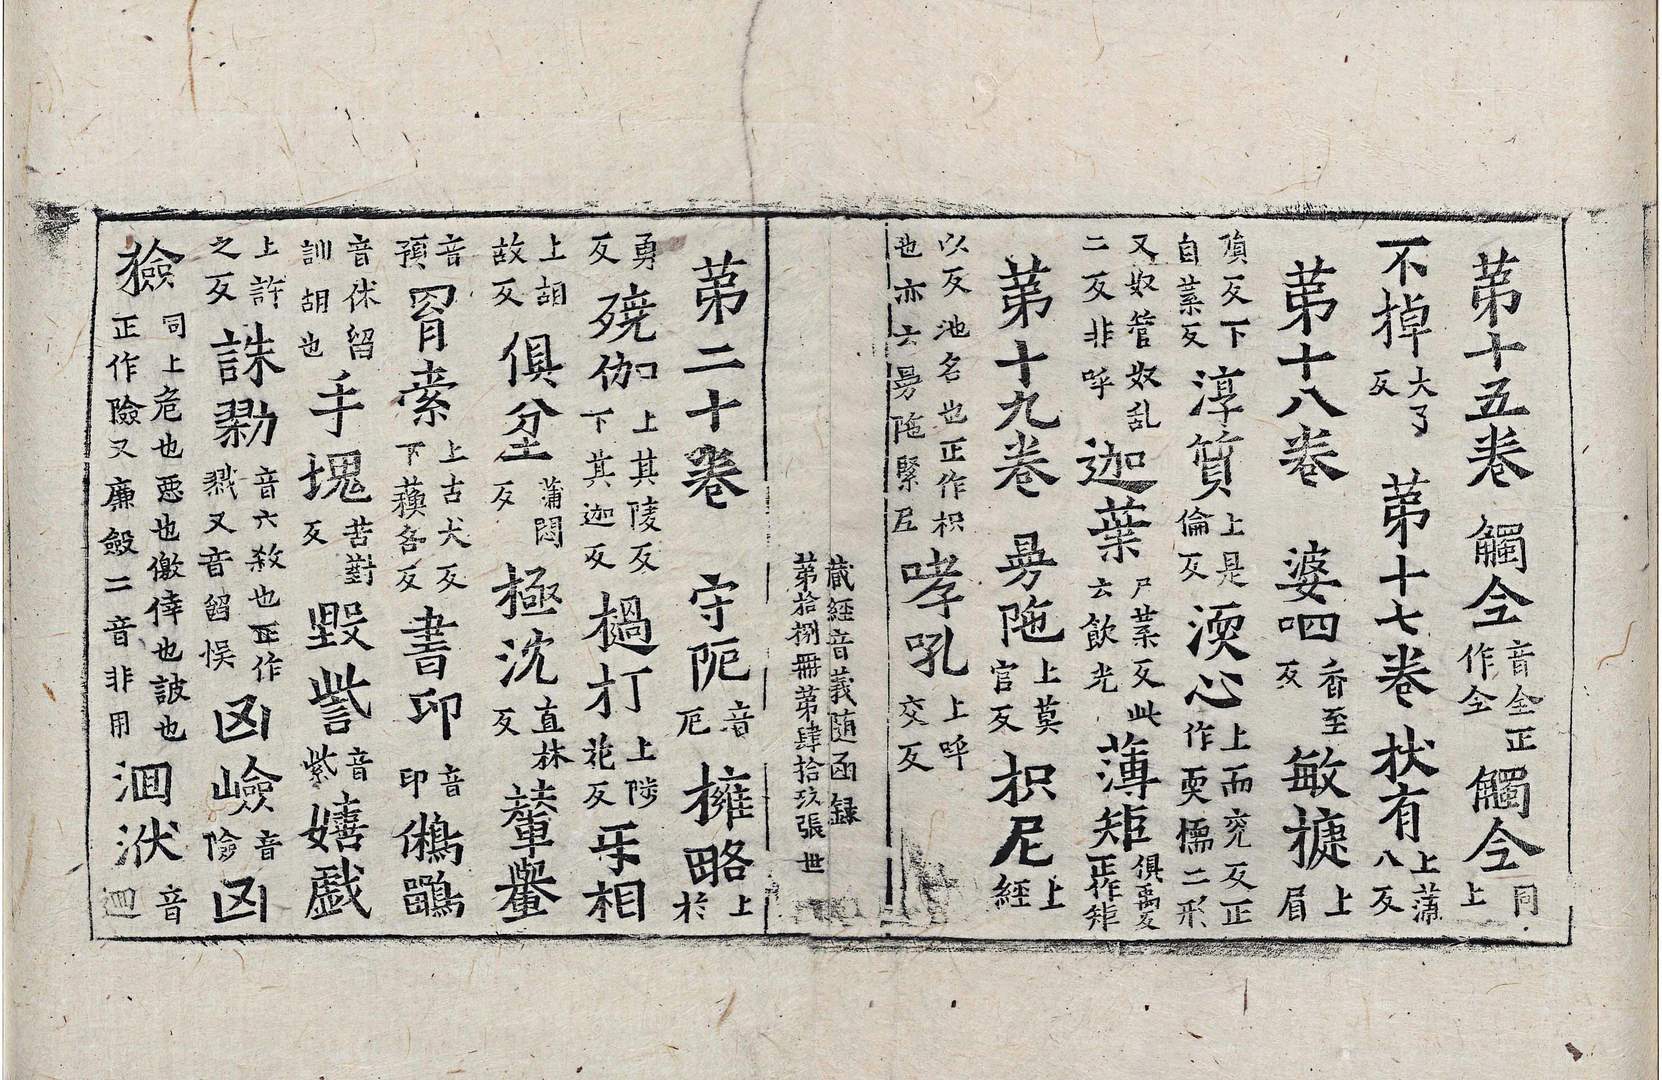 第十五卷 觸仝音全正作全 觸仝同上
不掉大了反 第十七卷 犮有上蒲八反
第十八卷 婆呬香至反 敏捷上眉
頂反下自葉反 淳質上是倫反 渜心上而兖反正作耎檽二形
又奴管奴乱二反非呼 迦葉尸葉反此云飲光 薄矩俱禹反正作矩
第十九卷 曼陁上莫官反 枳尼上經
以反池名也正作枳也亦云曼陁緊尼 哮吼上呼交反
藏經音義随函録
第拾捌冊第肆拾玖張 世
第二十卷 守阨音厄 擁略上於
勇反 殑伽上其陵反下其迦反 檛打上陟花反 牙相
上胡故反 俱坌蒲悶反 極沈直林反 輦轝
音預 罥索上古犬反下蘓各反 書印音印 鵂鶹
音休留訓胡也 手塊苦對反 毀訾音紫 嬉戲
上許之反 誅勠音六殺也正作戮又音留悮 凶嶮音險 凶
獫同上危也惡也儌倖也詖也正作險又廉斂二音非用 洄洑音迴